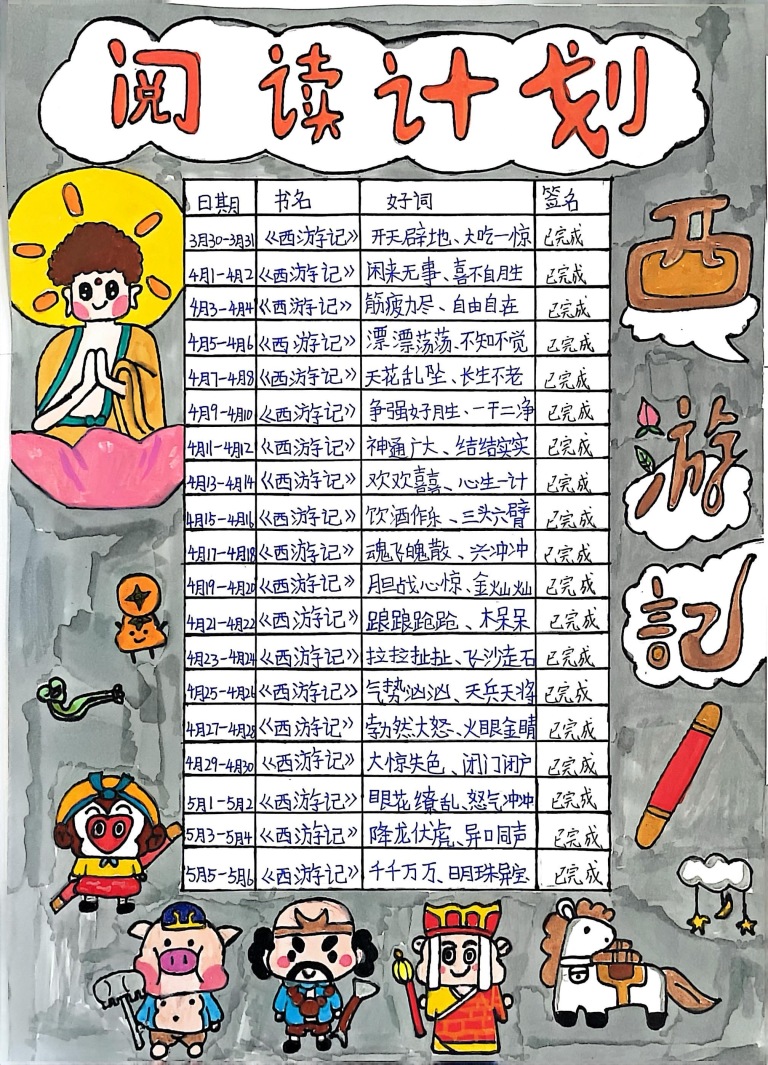 阅读计划
日期 书名 好词 签名
3月30-3月31 《西游记》 开天辟地、大吃一惊 已完成
4月1-4月2 《西游记》 闲来无事、喜不自胜 已完成
4月3-4月4 《西游记》 筋疲力尽、自由自在 已完成
4月5-4月6 《西游记》 漂漂荡荡、不知不觉 已完成
4月7-4月8 《西游记》 天花乱坠、长生不老 已完成
4月9-4月10 《西游记》 争强好胜、一干二净 已完成
4月11-4月12 《西游记》 神通广大、结结实实 已完成
4月13-4月14 《西游记》 欢欢喜喜、心生一计 已完成
4月15-4月16 《西游记》 饮酒作乐、三头六臂 已完成
4月17-4月18 《西游记》 魂飞魄散、兴冲冲 已完成
4月19-4月20 《西游记》 胆战心惊、金灿灿 已完成
4月21-4月22 《西游记》 踉踉跄跄、木呆呆 已完成
4月23-4月24 《西游记》 拉拉扯扯、飞沙走石 已完成
4月25-4月26 《西游记》 气势汹汹、天兵天将 已完成
4月27-4月28 《西游记》 勃然大怒、火眼金睛 已完成
4月29-4月30 《西游记》 大惊失色、闭门闭户 已完成
5月1-5月2 《西游记》 眼花缭乱、怒气冲冲 已完成
5月3-5月4 《西游记》 降龙伏虎、异口同声 已完成
5月5-5月6 《西游记》 千千万万、明珠异宝 已完成
西
游
記